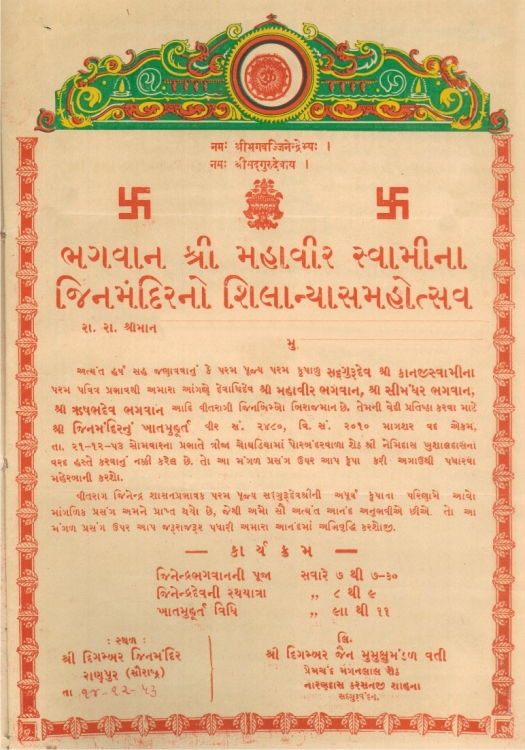 नमः श्रीभगवज्जिनेन्द्रेभ्यः ।
नमः श्रीसद्गुरुदेवाय ।
ભગવાન શ્રી મહાવીર સ્વામીના
જિનમંદિરનો શિલાન્યાસમહોત્સવ
રા. રા. શ્રીમાન
મુ.
અત્યંત હર્ષ સહ જણાવવાનું કે પરમ પૂજ્ય પરમ કૃપાળુ સદ્ગુરુદેવ શ્રી કાનજીસ્વામીના
પરમ પવિત્ર પ્રભાવથી અમારા આંગણે દેવાધિદેવ શ્રી મહાવીર ભગવાન, શ્રી સીમંધર ભગવાન,
શ્રી ઋષભદેવ ભગવાન આદિ વીતરાગી જિનબિંબો બિરાજમાન છે, તેમની વેદી પ્રતિષ્ઠા કરવા માટે
શ્રી જિનમંદિરનું ખાતમુહૂર્ત વીર સં. ૨૪૮૦, વિ. સં. ૨૦૧૦ માગશર વદ એકમ,
તા. ૨૧-૧૨-૫૩ સોમવારના પ્રભાતે ત્રીજા ચોઘડિયામાં પોરબંદરવાળા શેઠ શ્રી નેમિદાસ ખુશાલદાસના
વરદ હસ્તે કરવાનું નક્કી કરેલ છે. તો આ મંગળ પ્રસંગ ઉપર આપ કૃપા કરી અગાઉથી પધારવા
મહેરબાની કરશો.
વીતરાગ જિનેન્દ્ર શાસનપ્રભાવક પરમ પૂજ્ય સદ્ગુરુદેવશ્રીની અપૂર્વ કૃપાના પરિણામે આવો
માંગળિક પ્રસંગ અમને પ્રાપ્ત થયો છે, જેથી અમો સૌ અત્યંત આનંદ અનુભવીએ છીએ. તો આ
મંગળ પ્રસંગ ઉપર આપ જરૂરાજરૂર પધારી અમારા આનંદમાં અભિવૃદ્ધિ કરશોજી.
— કાર્યક્રમ —
જિનેન્દ્રભગવાનની પૂજા સવારે ૭ થી ૭-૩૦
જિનેન્દ્રદેવની રથયાત્રા ,, ૮ થી ૯
ખાતમુહૂર્ત વિધિ ,, ૯ાા થી ૧૧
: સ્થળ :
શ્રી દિગમ્બર જિનમંદિર
રાણપુર (સૌરાષ્ટ્ર)
તા ૧૪-૧૨-૫૩
લિ.
શ્રી દિગમ્બર જૈન મુમુક્ષુમંડળ વતી
પ્રેમચંદ મગનલાલ શેઠ
નારણદાસ કરસનજી શાહના
સદ્ગુરુવંદન.